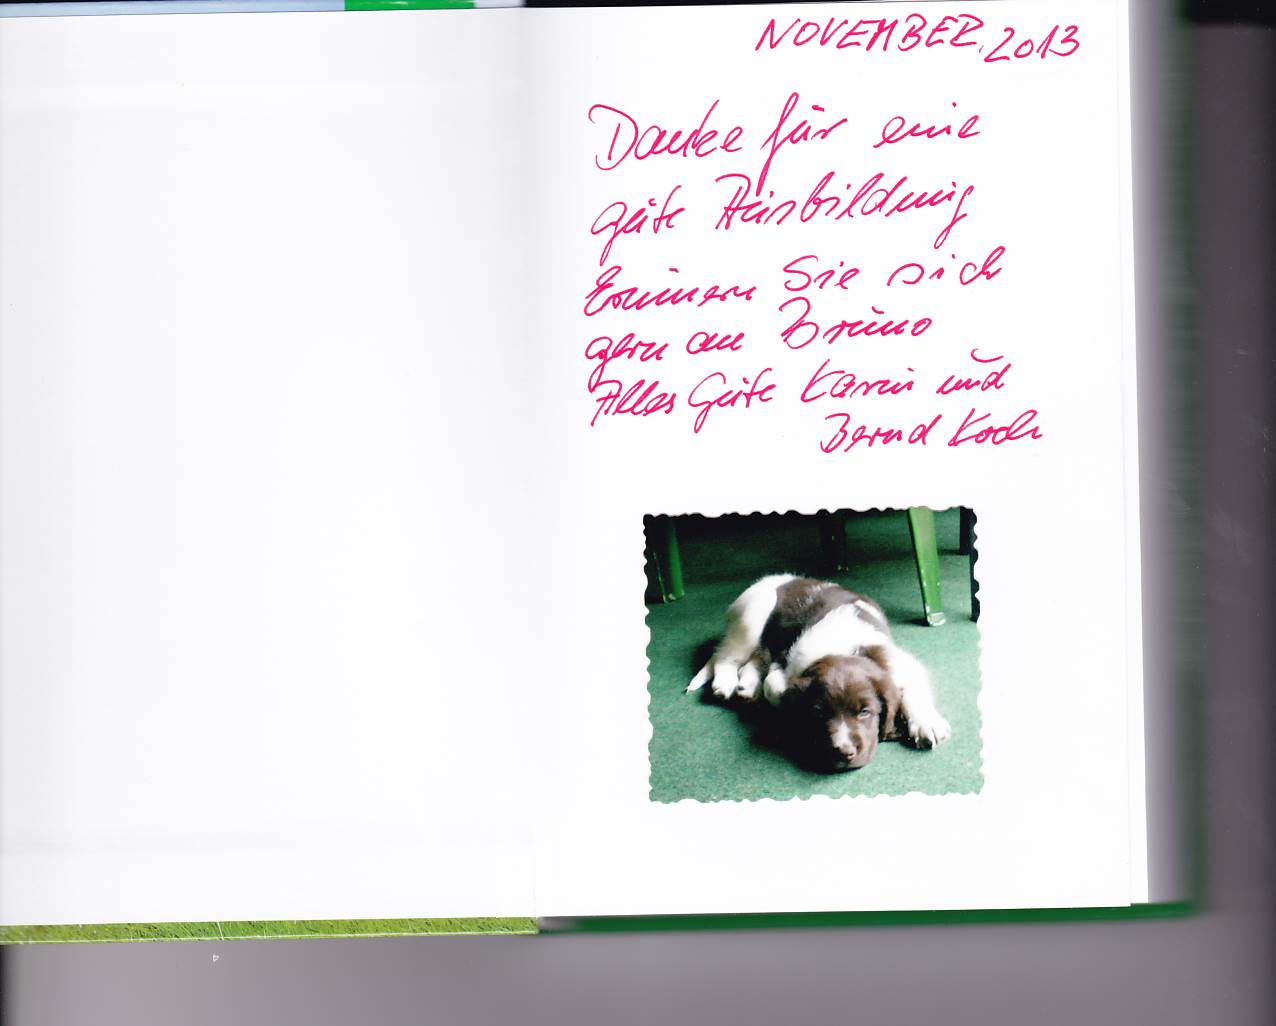 NOVEMBER, 2013
Danke für eine
gute Ausbildung
Erinnern Sie sich
gern an Bruno
Alles Gute Karin und
Bernd Koch